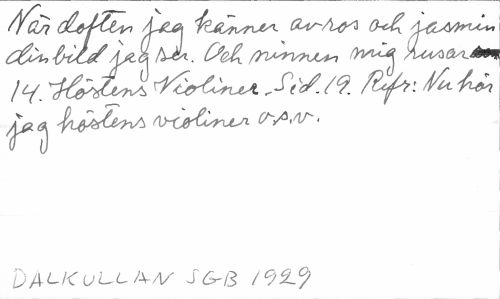 När doften jag känner av ros och jasmin
din bild jag ser. Och minnen mig rusar
14. Höstens Violiner. Sid. 19. Refr: Nu hör
jag höstens violiner o.s.v.
DALKULLAN SGB 1929